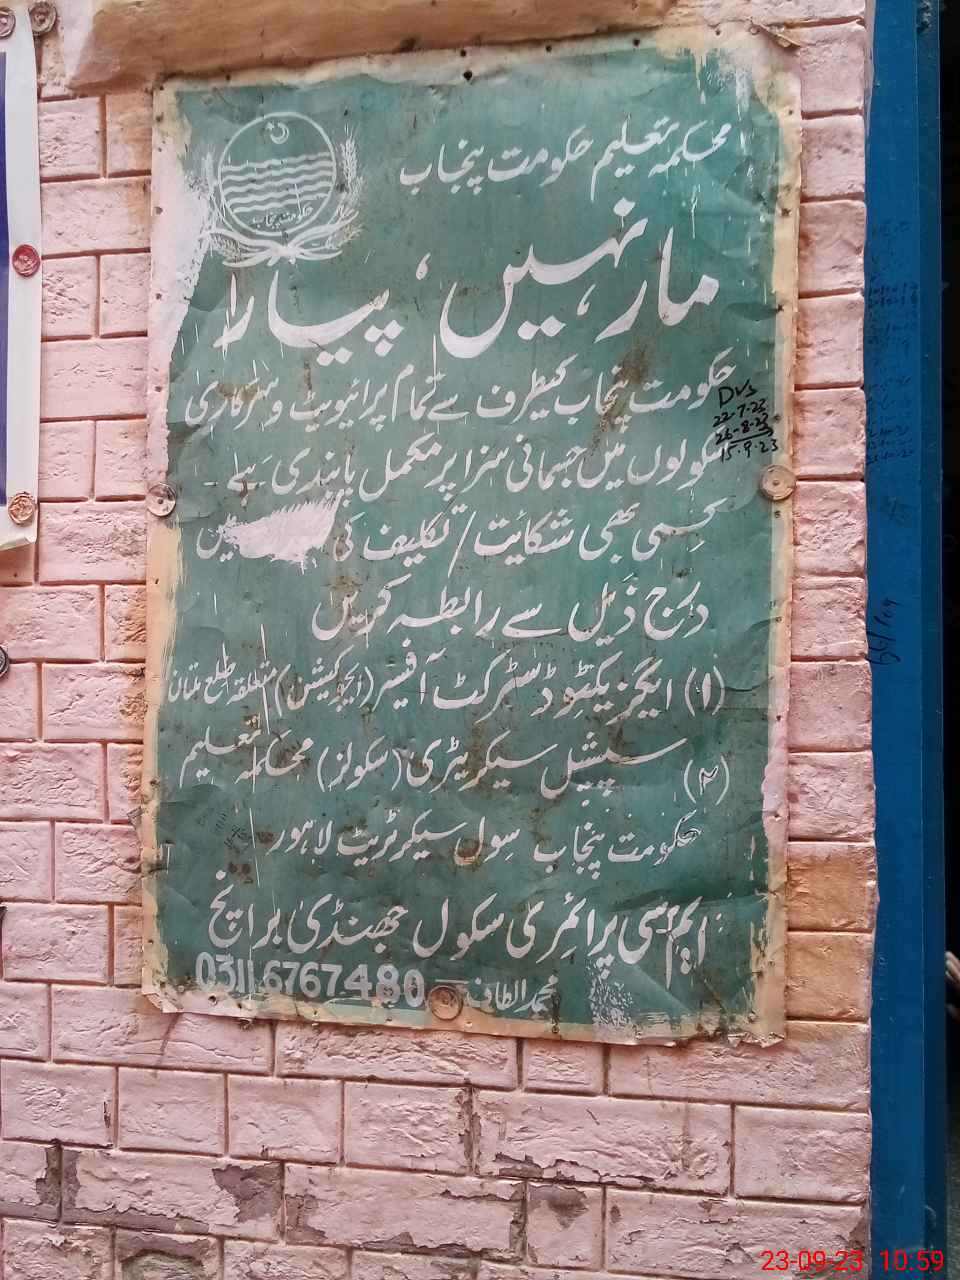 محکمہ تعلیم حکومت پنجاب
حکومت پنجاب
مار نہیں، پیار
حکومت پنجاب کیطرف سے تمام پرائیویٹ و سرکاری
سکولوں میں جسمانی سزا پر مکمل پابندی ہے -
کسی بھی شکائت / تکلیف کی میں
درج ذیل سے رابطہ کریں
(۱) ایگزیکٹو ڈسٹرکٹ آفیسر (ایجوکیشن) متعلقہ ضلع ملتان
(۲) سپیشل سیکریٹری (سکولز) محکمہ تعلیم
حکومت پنجاب سول سیکرٹریٹ لاہور
ایم سی پرائمری سکول جھنڈی برانچ
محمد الطاف 0311 6767480
DVs
22-7-23
26-8-23
15-9-23
23-09-23 10:59